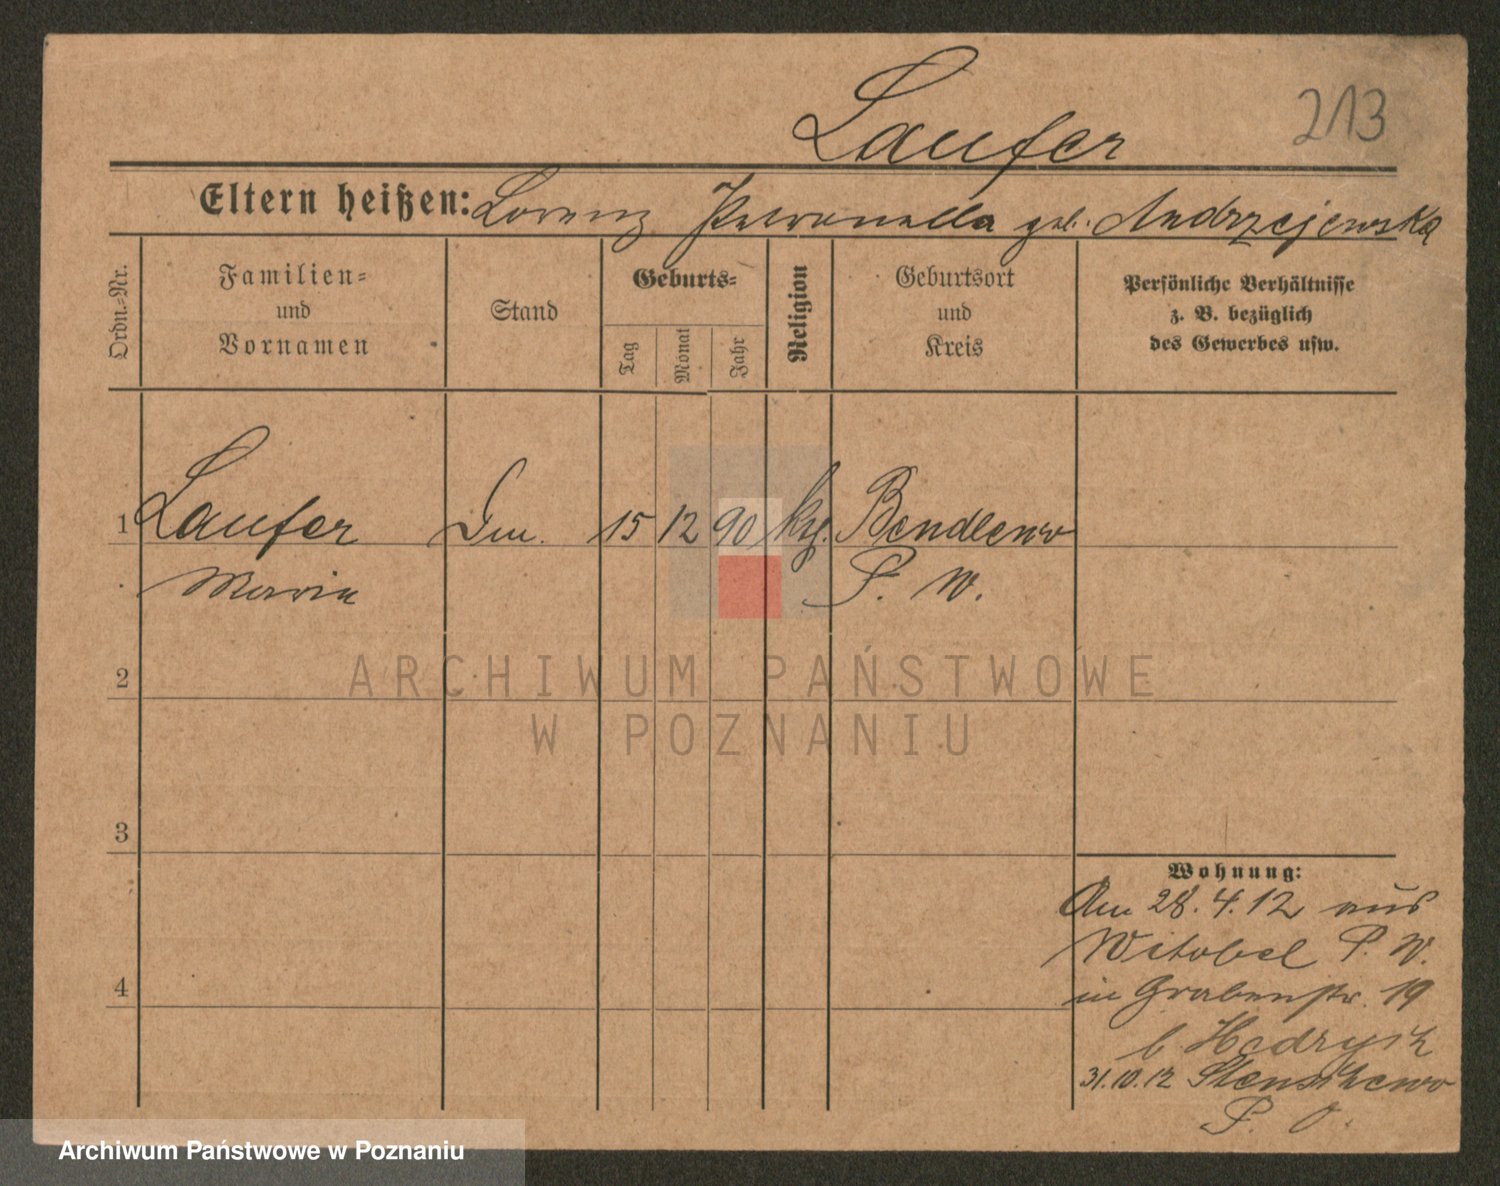 Laufer
213
Eltern heißen: Lorenz Petronella geb. Andrzejewska
Ordn.-Nr.
Familien-
und
Vornamen
Stand
Geburts-
Tag
Monat
Jahr
Religion
Geburtsort
und
Kreis
Persönliche Verhältnisse
z. B. bezüglich
des Gewerbes usw.
1 Laufer 15 12 90 Bendlewo
Maria P. W.
2
3
4
Wohnung:
Am 28.4.12 aus
Witobel P. W.
in Grabenstr. 19
b
31.10.12 Stenschewo
P. O.
ARCHIWUM PAŃSTWOWE
W POZNANIU
Archiwum Państwowe w Poznaniu